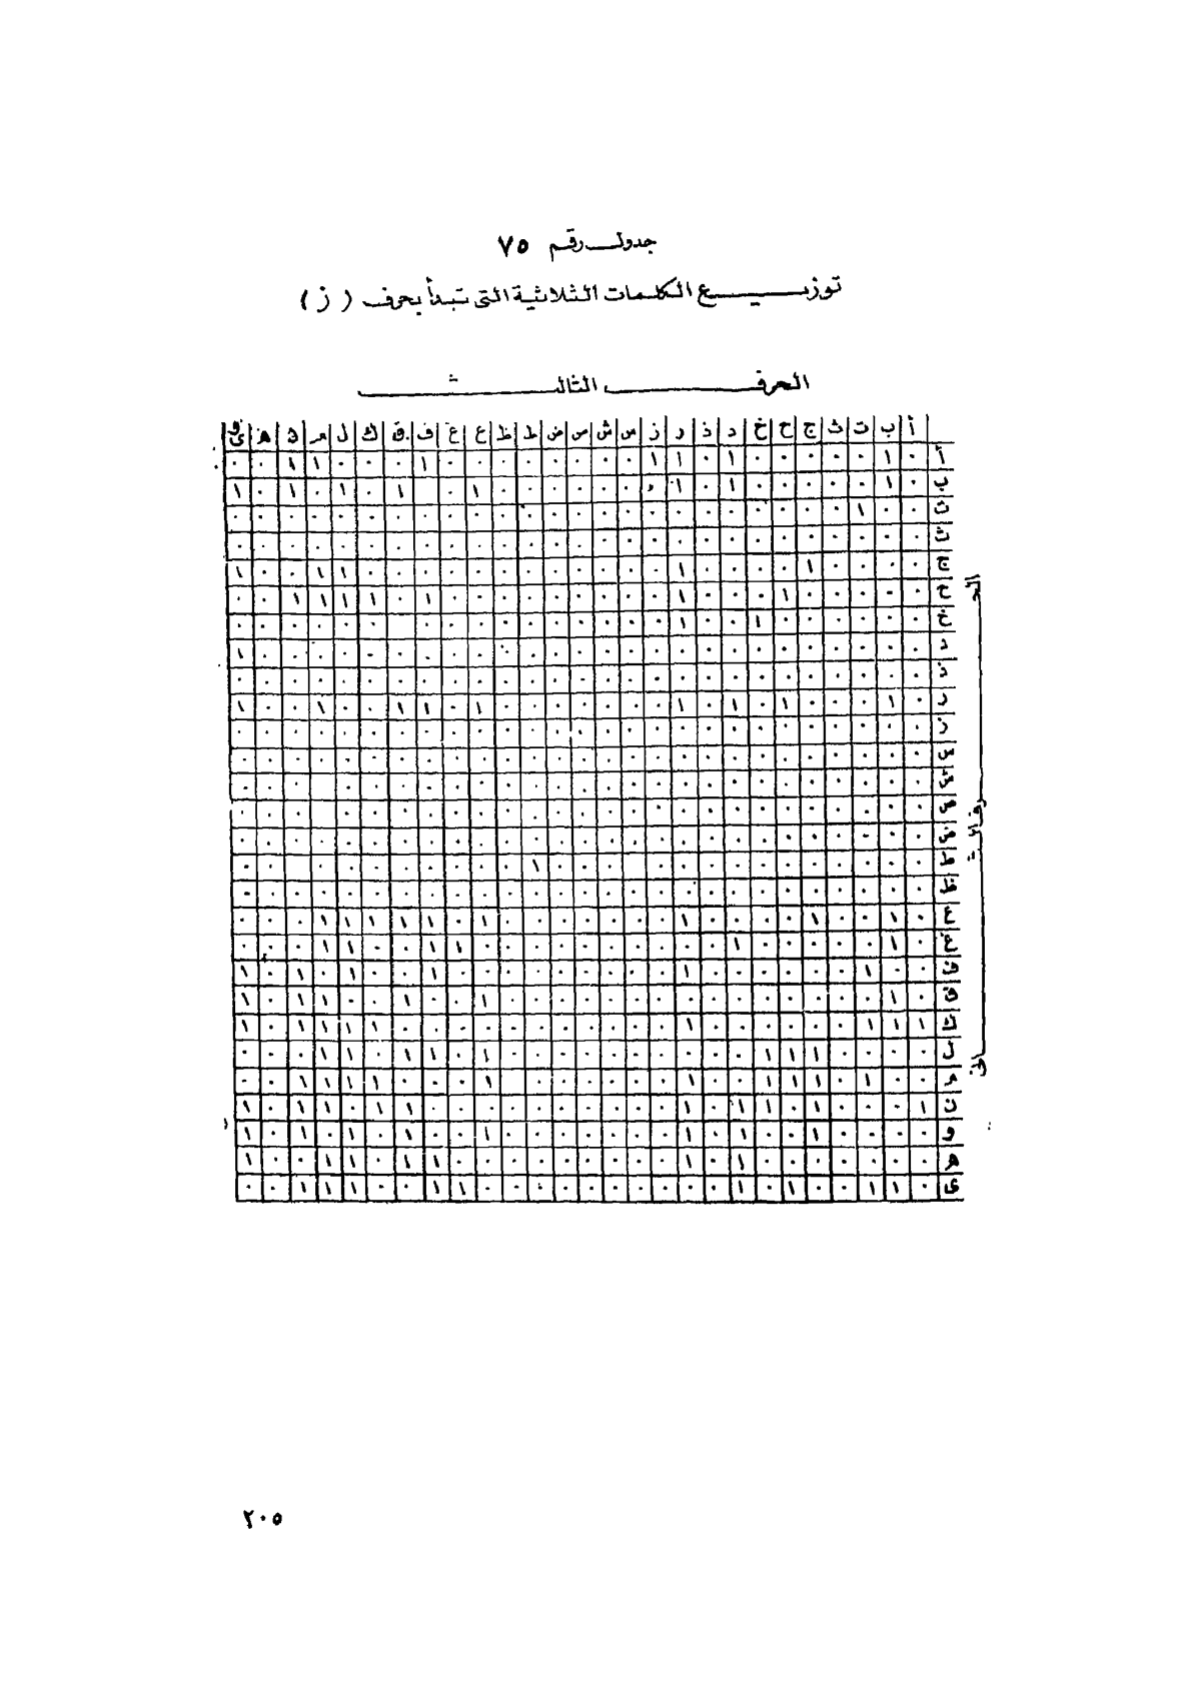 جدول رقم ٧٥
توزيع الكلمات الثلاثية التى تبدأ بحرف ( ز )
الحرف الثالث
أ ب ت ث ج ح خ د ذ ر ز س ش ص ض ط ظ ع غ ف ق ك ل م ن ه وى
أ ٠ ١ ٠ ٠ ٠ ٠ ٠ ١ ٠ ١ ١ ٠ ٠ ٠ ٠ ٠ ٠ ٠ ٠ ١ ٠ ٠ ٠ ١ ١ ٠ ٠
ب ٠ ١ ٠ ٠ ٠ ٠ ٠ ١ ٠ ١ ٠ ٠ ٠ ٠ ٠ ٠ ١ ٠ ١ ٠ ١ ٠ ١ ٠ ١
ت ٠ ٠ ١ ٠ ٠ ٠ ٠ ٠ ٠ ٠ ٠ ٠ ٠ ٠ ٠ ٠ ٠ ٠ ٠ ٠ ٠ ٠ ٠ ٠ ٠ ٠ ٠
ث ٠ ٠ ٠ ٠ ٠ ٠ ٠ ٠ ٠ ٠ ٠ ٠ ٠ ٠ ٠ ٠ ٠ ٠ ٠ ٠ ٠ ٠ ٠ ٠ ٠ ٠ ٠
ج ٠ ٠ ٠ ٠ ١ ٠ ٠ ٠ ٠ ١ ٠ ٠ ٠ ٠ ٠ ٠ ٠ ٠ ٠ ٠ ٠ ٠ ١ ١ ٠ ٠ ١
ح ٠ ٠ ٠ ٠ ٠ ١ ٠ ٠ ٠ ١ ٠ ٠ ٠ ٠ ٠ ٠ ٠ ٠ ٠ ١ ٠ ١ ١ ١ ١ ٠ ٠
خ ٠ ٠ ٠ ٠ ٠ ٠ ١ ٠ ٠ ١ ٠ ٠ ٠ ٠ ٠ ٠ ٠ ٠ ٠ ٠ ٠ ٠ ٠ ٠ ٠ ٠
د ٠ ٠ ٠ ٠ ٠ ٠ ٠ ٠ ٠ ٠ ٠ ٠ ٠ ٠ ٠ ٠ ٠ ٠ ٠ ٠ ٠ ٠ ٠ ٠ ٠ ٠ ١
ذ ٠ ٠ ٠ ٠ ٠ ٠ ٠ ٠ ٠ ٠ ٠ ٠ ٠ ٠ ٠ ٠ ٠ ٠ ٠ ٠ ٠ ٠ ٠ ٠ ٠ ٠ ٠
ر ٠ ١ ٠ ٠ ٠ ١ ٠ ١ ٠ ١ ٠ ٠ ٠ ٠ ٠ ٠ ٠ ١ ٠ ١ ١ ٠ ٠ ١ ٠ ٠ ١
ز ٠ ٠ ٠ ٠ ٠ ٠ ٠ ٠ ٠ ٠ ٠ ٠ ٠ ٠ ٠ ٠ ٠ ٠ ٠ ٠ ٠ ٠ ٠ ٠ ٠ ٠ ٠
س ٠ ٠ ٠ ٠ ٠ ٠ ٠ ٠ ٠ ٠ ٠ ٠ ٠ ٠ ٠ ٠ ٠ ٠ ٠ ٠ ٠ ٠ ٠ ٠ ٠ ٠ ٠
ش ٠ ٠ ٠ ٠ ٠ ٠ ٠ ٠ ٠ ٠ ٠ ٠ ٠ ٠ ٠ ٠ ٠ ٠ ٠ ٠ ٠ ٠ ٠ ٠ ٠ ٠
ص ٠ ٠ ٠ ٠ ٠ ٠ ٠ ٠ ٠ ٠ ٠ ٠ ٠ ٠ ٠ ٠ ٠ ٠ ٠ ٠ ٠ ٠ ٠ ٠ ٠ ٠
ض ٠ ٠ ٠ ٠ ٠ ٠ ٠ ٠ ٠ ٠ ٠ ٠ ٠ ٠ ٠ ٠ ٠ ٠ ٠ ٠ ٠ ٠ ٠ ٠ ٠ ٠ ٠
ط ٠ ٠ ٠ ٠ ٠ ٠ ٠ ٠ ٠ ٠ ٠ ٠ ٠ ٠ ٠ ١ ٠ ٠ ٠ ٠ ٠ ٠ ٠ ٠ ٠ ٠ ٠
ظ ٠ ٠ ٠ ٠ ٠ ٠ ٠ ٠ ٠ ٠ ٠ ٠ ٠ ٠ ٠ ٠ ٠ ٠ ٠ ٠ ٠ ٠ ٠ ٠ ٠ ٠ ٠
ع ٠ ١ ٠ ٠ ١ ٠ ٠ ٠ ٠ ١ ٠ ٠ ٠ ٠ ٠ ٠ ٠ ١ ٠ ١ ١ ١ ١ ١ ٠ ٠ ٠
غ ٠ ١ ٠ ٠ ٠ ٠ ٠ ١ ٠ ٠ ٠ ٠ ٠ ٠ ٠ ٠ ٠ ٠ ١ ١ ٠ ٠ ١ ١ ٠ ٠ ٠
ف ٠ ٠ ١ ٠ ٠ ٠ ٠ ٠ ٠ ١ ٠ ٠ ٠ ٠ ٠ ٠ ٠ ٠ ٠ ١ ٠ ٠ ١ ٠ ١ ٠ ١
ق ٠ ١ ٠ ٠ ٠ ٠ ٠ ٠ ٠ ٠ ٠ ٠ ٠ ٠ ٠ ٠ ٠ ١ ٠ ٠ ١ ٠ ٠ ١ ١ ٠ ١
ك ١ ١ ١ ٠ ٠ ٠ ٠ ٠ ٠ ١ ٠ ٠ ٠ ٠ ٠ ٠ ٠ ٠ ٠ ٠ ٠ ١ ١ ١ ١ ٠ ١
ل ٠ ٠ ٠ ٠ ١ ١ ١ ٠ ٠ ٠ ٠ ٠ ٠ ٠ ٠ ٠ ٠ ١ ٠ ١ ١ ٠ ١ ١ ٠ ٠ ٠
م ٠ ٠ ١ ٠ ١ ١ ١ ٠ ٠ ١ ٠ ٠ ٠ ٠ ٠ ٠ ١ ٠ ٠ ٠ ١ ١ ١ ١ ٠ ٠
ن ١ ٠ ٠ ٠ ١ ٠ ١ ١ ٠ ١ ٠ ٠ ٠ ٠ ٠ ٠ ٠ ٠ ٠ ٠ ١ ١ ٠ ١ ١ ٠ ١
و ٠ ٠ ٠ ٠ ١ ٠ ٠ ١ ٠ ١ ٠ ٠ ٠ ٠ ٠ ٠ ٠ ١ ٠ ٠ ١ ٠ ١ ٠ ١ ٠ ١
ه ٠ ٠ ٠ ٠ ٠ ٠ ٠ ١ ٠ ١ ٠ ٠ ٠ ٠ ٠ ٠ ٠ ٠ ٠ ١ ١ ٠ ١ ١ ٠ ٠ ١
ى ٠ ١ ١ ٠ ٠ ١ ٠ ١ ٠ ٠ ٠ ٠ ٠ ٠ ٠ ٠ ٠ ٠ ١ ١ ٠ ٠ ١ ١ ١ ٠ ٠
الحرف الثانى
٢٠٥